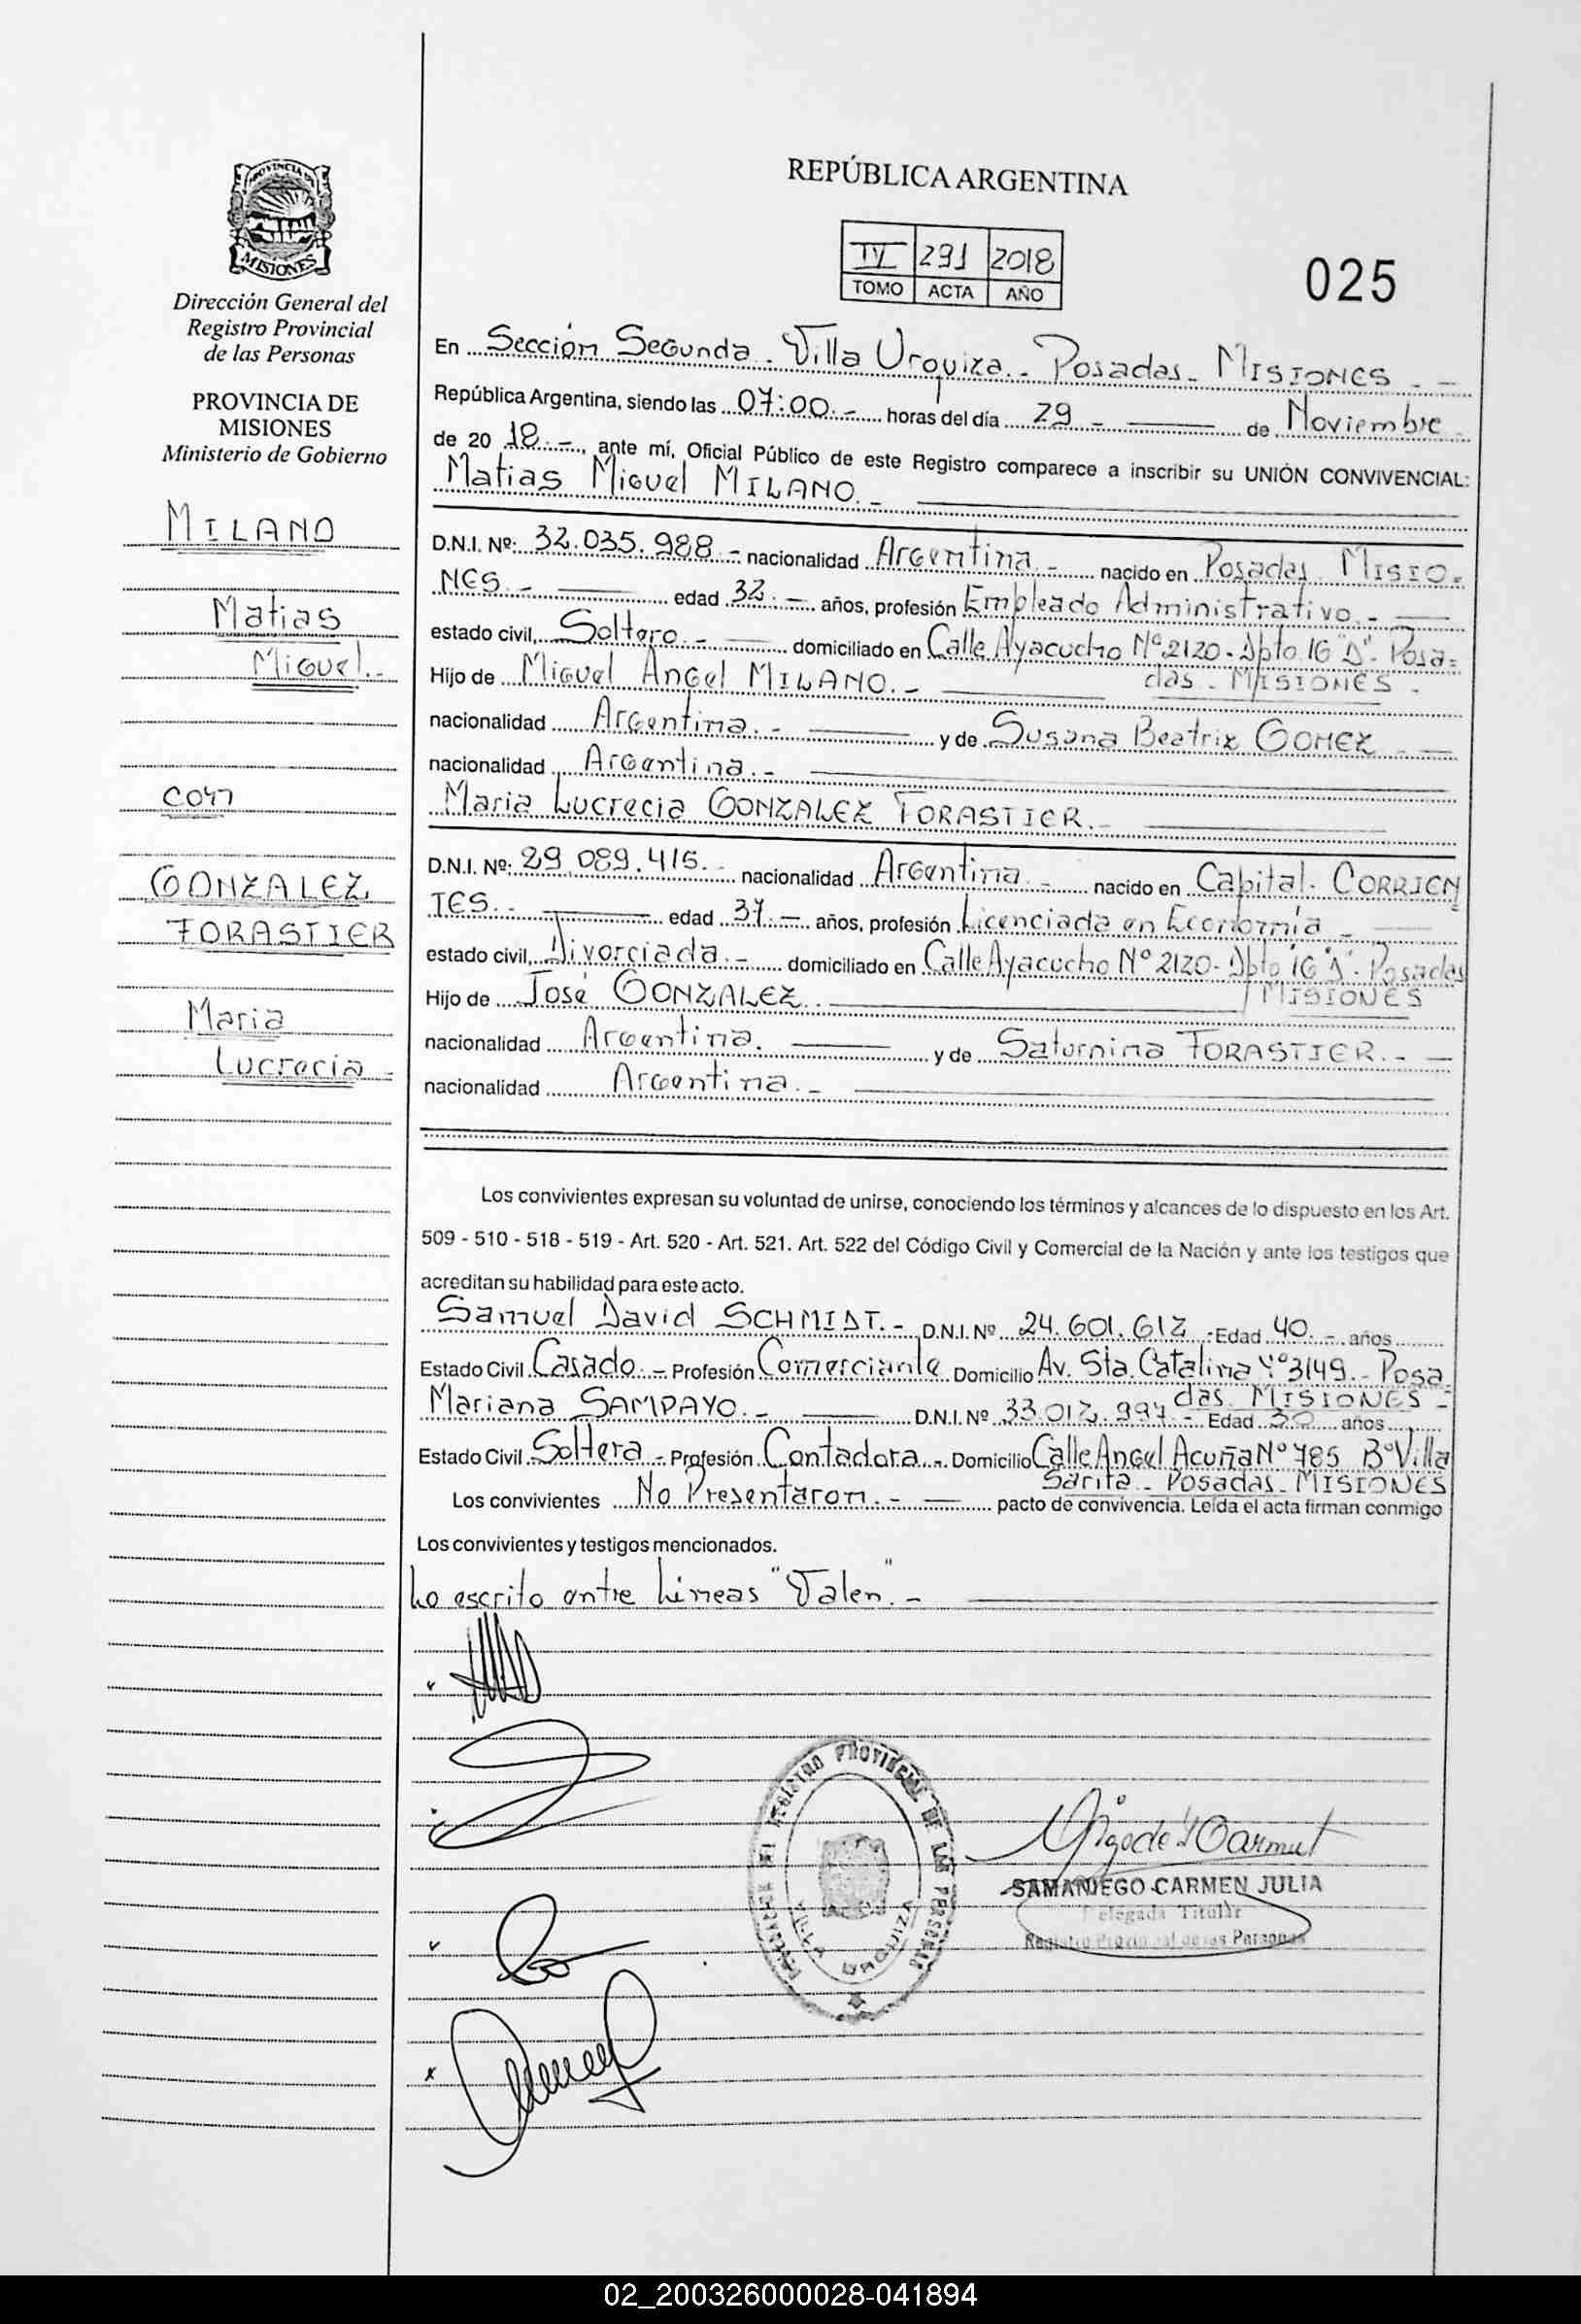 PROVINCIA DE
MISIONES
Dirección General del
Registro Provincial
de las Personas
PROVINCIA DE
MISIONES
Ministerio de Gobierno
MILANO
Matias
Miguel.-
con
GONZALEZ
FORASTIER
Maria
Lucrecia -
REPÚBLICA ARGENTINA
IV 291 2018
TOMO ACTA AÑO
025
En Sección Segunda - Villa Urquiza.- Posadas - MISIONES - -
República Argentina, siendo las 07:00.- horas del día 29 - de Noviembre -
de 20 18.-, ante mí, Oficial Público de este Registro comparece a inscribir su UNIÓN CONVIVENCIAL:
Matias Miguel MILANO.-
D.N.I. Nº: 32.035.988.- nacionalidad Argentina.- nacido en Posadas MISIO-
NES.- edad 32.- años, profesión Empleado Administrativo.-
estado civil, Soltero.- domiciliado en Calle Ayacucho Nº 2120 - Dpto. 16 "D". Posa=
das - MISIONES -
Hijo de Miguel Angel MILANO.-
nacionalidad Argentina.- y de Susana Beatriz GOMEZ -
nacionalidad Argentina.-
Maria Lucrecia GONZALEZ FORASTIER.-
D.N.I. Nº: 29.089.415.- nacionalidad Argentina.- nacido en Capital - CORRIEN
TES.- edad 37.- años, profesión Licenciada en Economía -
estado civil, Divorciada.- domiciliado en Calle Ayacucho Nº 2120 - Dpto 16 "D". Posadas
MISIONES
Hijo de José GONZALEZ.
nacionalidad Argentina. y de Saturnina FORASTIER.-
nacionalidad Argentina.-
Los convivientes expresan su voluntad de unirse, conociendo los términos y alcances de lo dispuesto en los Art.
509 - 510 - 518 - 519 - Art. 520 - Art. 521. Art. 522 del Código Civil y Comercial de la Nación y ante los testigos que
acreditan su habilidad para este acto.
Samuel David SCHMIDT.- D.N.I. Nº 24.601.612 - Edad 40.- años
Estado Civil Casado.- Profesión Comerciante Domicilio Av. Sta. Catalina Nº 3149.- Posa
das. MISIONES -
Mariana SAMPAYO.- D.N.I. Nº 33.012.997.- Edad 30 años
Estado Civil Soltera - Profesión Contadora.- Domicilio Calle Angel Acuña Nº 785 Bº Villa
Sarita - Posadas - MISIONES
Los convivientes No Presentaron.- pacto de convivencia. Leída el acta firman conmigo
Los convivientes y testigos mencionados.
Lo escrito entre Lineas "Valen".-
REGISTRO PROVINCIAL DE LAS PERSONAS
VILLA URQUIZA
SAMANIEGO CARMEN JULIA
Delegada Titular
Registro Provincial de las Personas
02_200326000028-041894